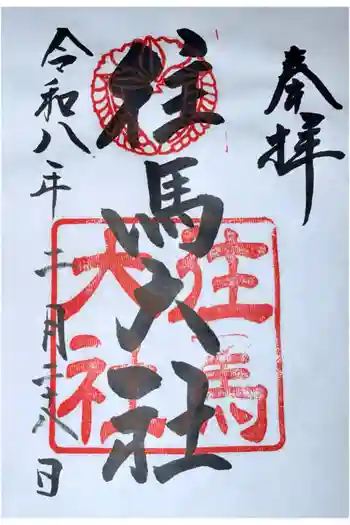 奉拝
往馬大社
往馬大社
令和八年二月二十八日